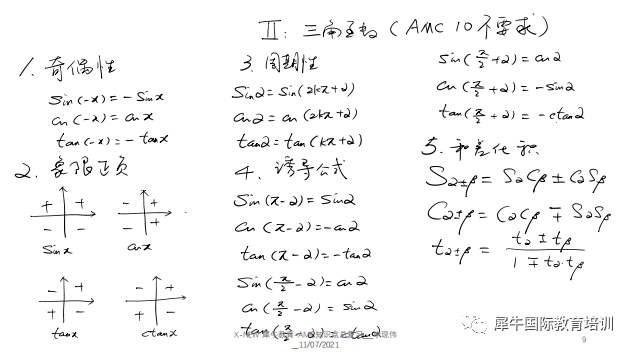 II: 三角函数 (AMC 10 不要求)
1. 奇偶性
sin(-x) = -sinx
cos(-x) = cosx
tan(-x) = -tanx
2. 象限正负
+ +
- -
sinx
- +
- +
cosx
- +
+ -
tanx
- +
+ -
ctanx
3. 周期性
sinα = sin(2kπ+α)
cosα = cos(2kπ+α)
tanα = tan(kπ+α)
4. 诱导公式
sin(π-α) = sinα
cos(π-α) = -cosα
tan(π-α) = -tanα
sin(π/2 -α) = cosα
cos(π/2 -α) = sinα
tan(π/2 -α) = ctanα
sin(π/2 +α) = cosα
cos(π/2 +α) = -sinα
tan(π/2 +α) = -ctanα
5. 和差化积
Sα±β = SαCβ ± CαSβ
Cα±β = CαCβ ∓ SαSβ
tα±β = (tα ± tβ) / (1 ∓ tα·tβ)
犀牛国际教育培训
11/07/2021
9